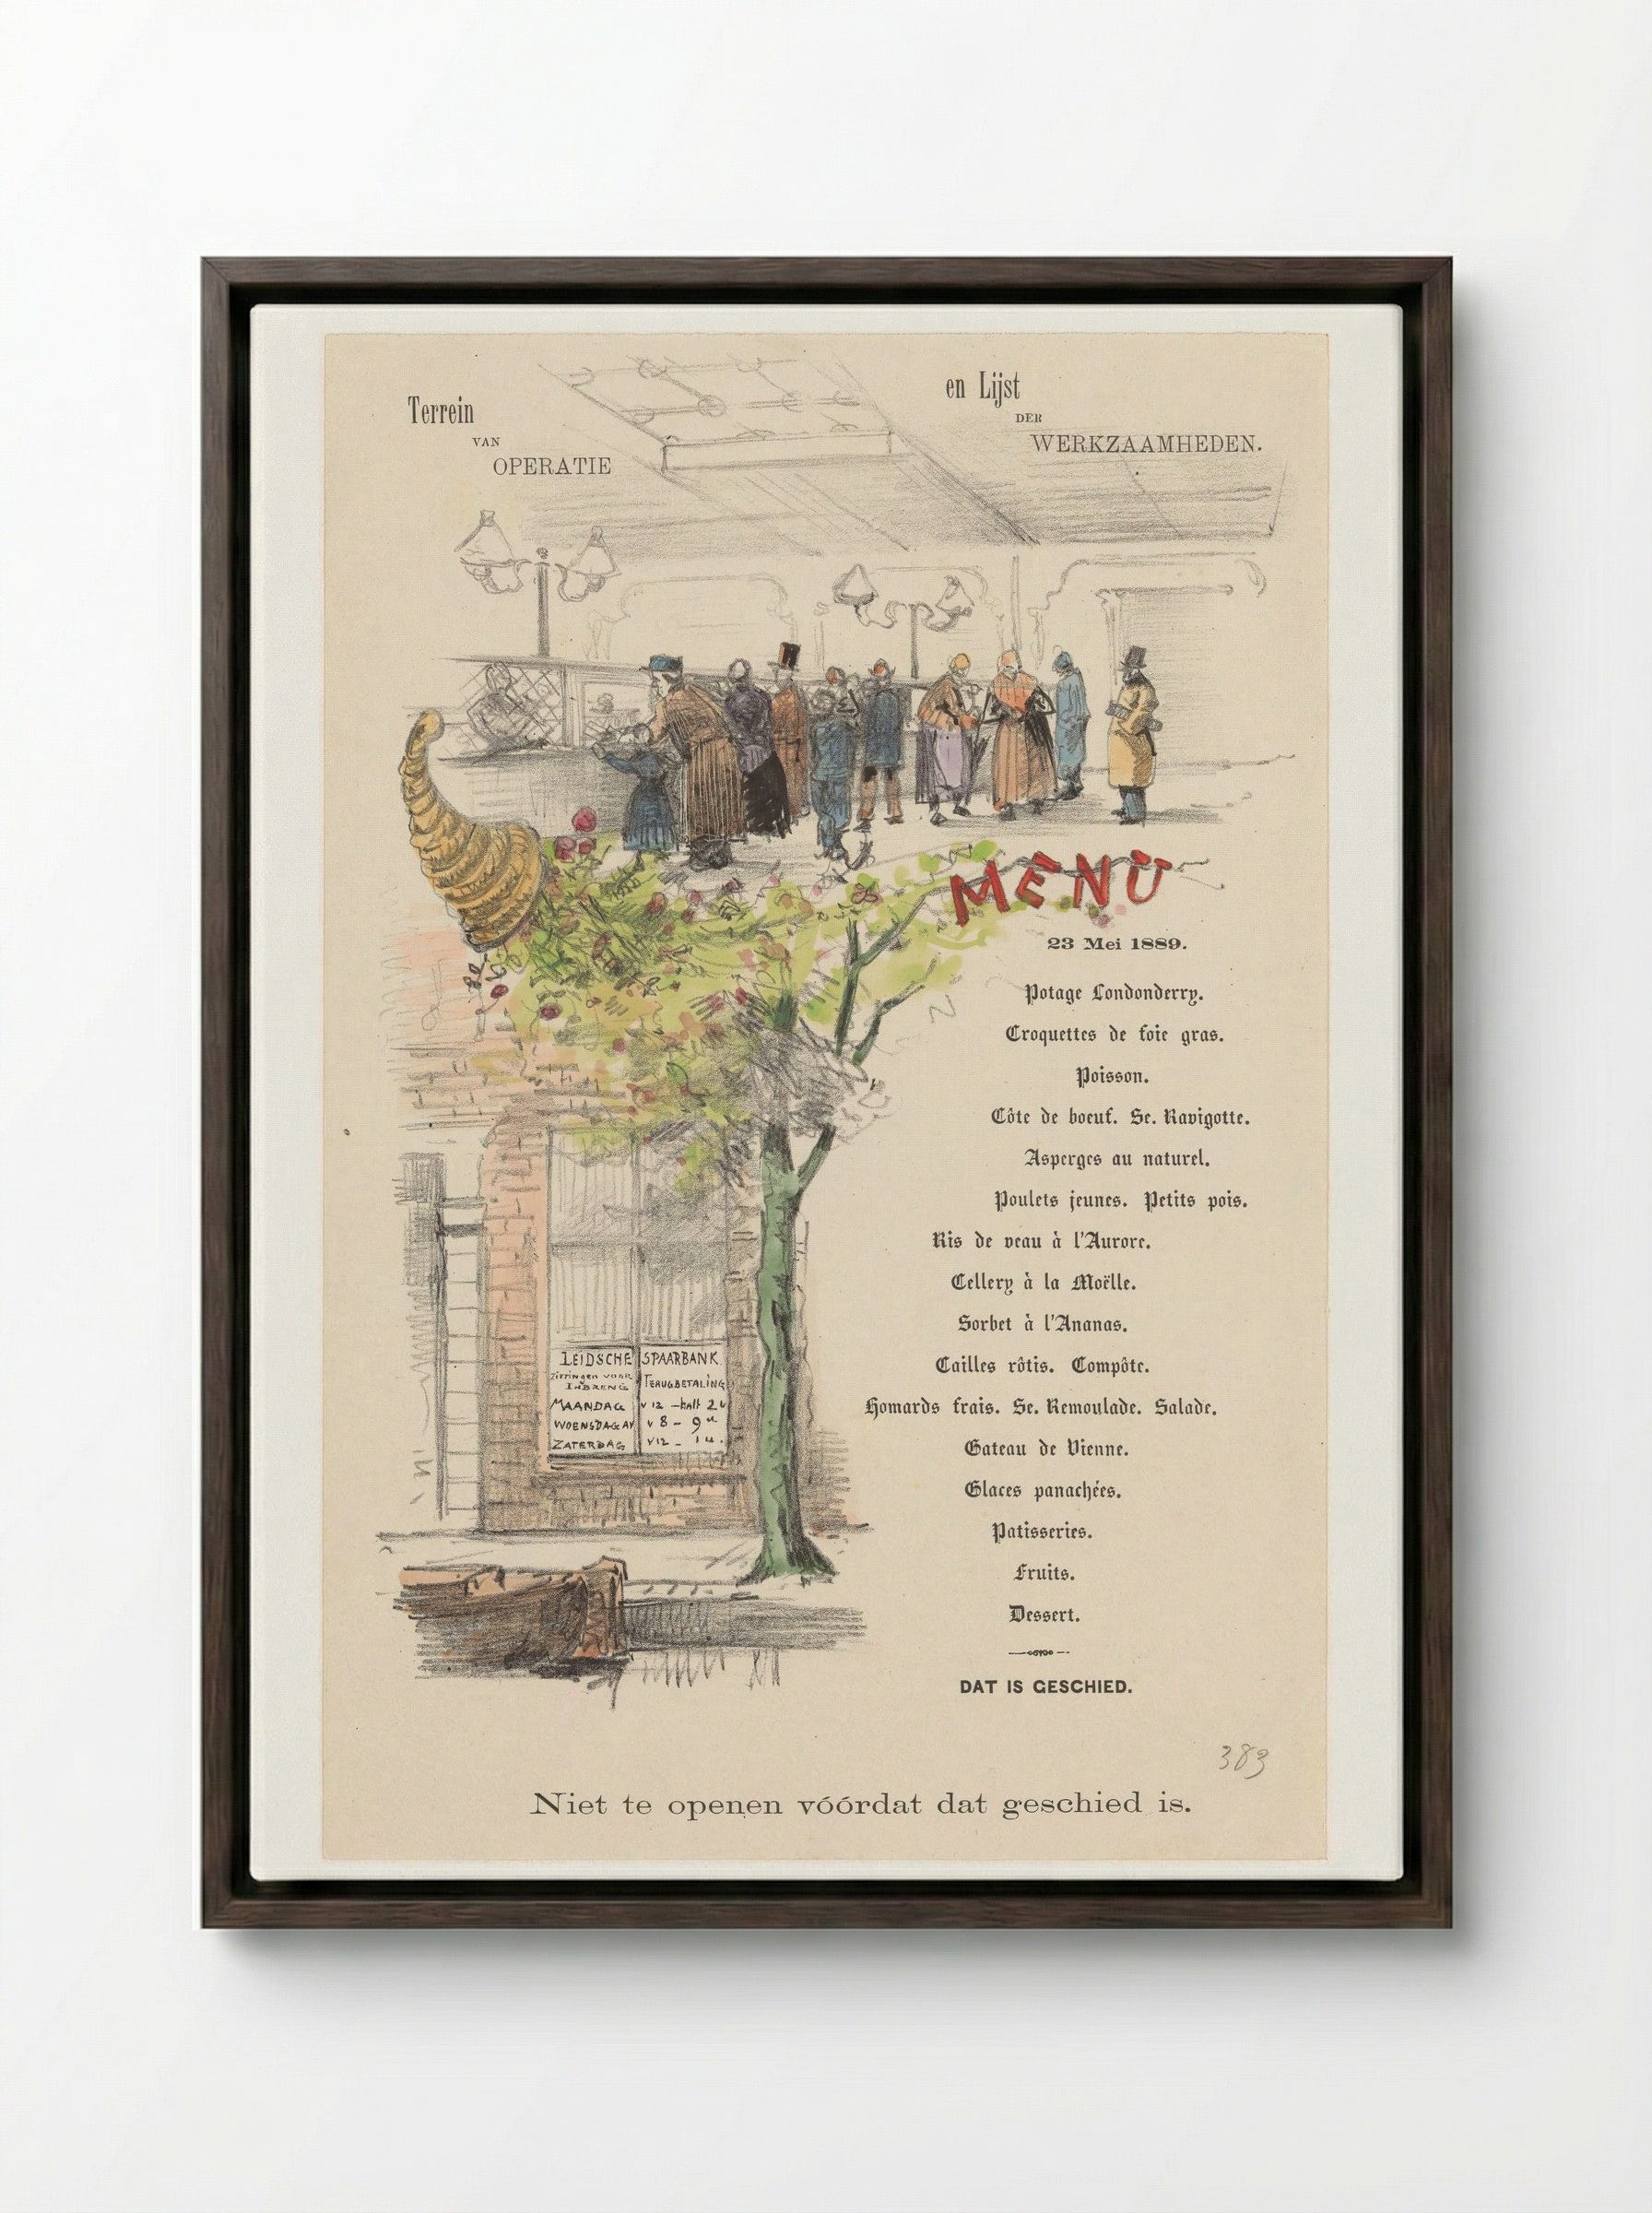 Terrein
VAN
OPERATIE
en Lijst
DER
WERKZAAMHEDEN.
MENU
23 Mei 1889.
Potage Londonderry.
Croquettes de foie gras.
Poisson.
Côte de boeuf. Sc. Ravigotte.
Asperges au naturel.
Poulets jeunes. Petits pois.
Ris de veau à l'Aurore.
Cellery à la Moëlle.
Sorbet à l'Ananas.
Cailles rôtis. Compôte.
Homards frais. Sc. Remoulade. Salade.
Gateau de Vienne.
Glaces panachées.
Patisseries.
Fruits.
Dessert.
DAT IS GESCHIED.
LEIDSCHE SPAARBANK
Zittingen voor
INBRENG TERUGBETALING
MAANDAG v 12 - half 2 u
WOENSDAG AV v 8 - 9 u
ZATERDAG v 12 - 1 u.
383
Niet te openen vóórdat dat geschied is.